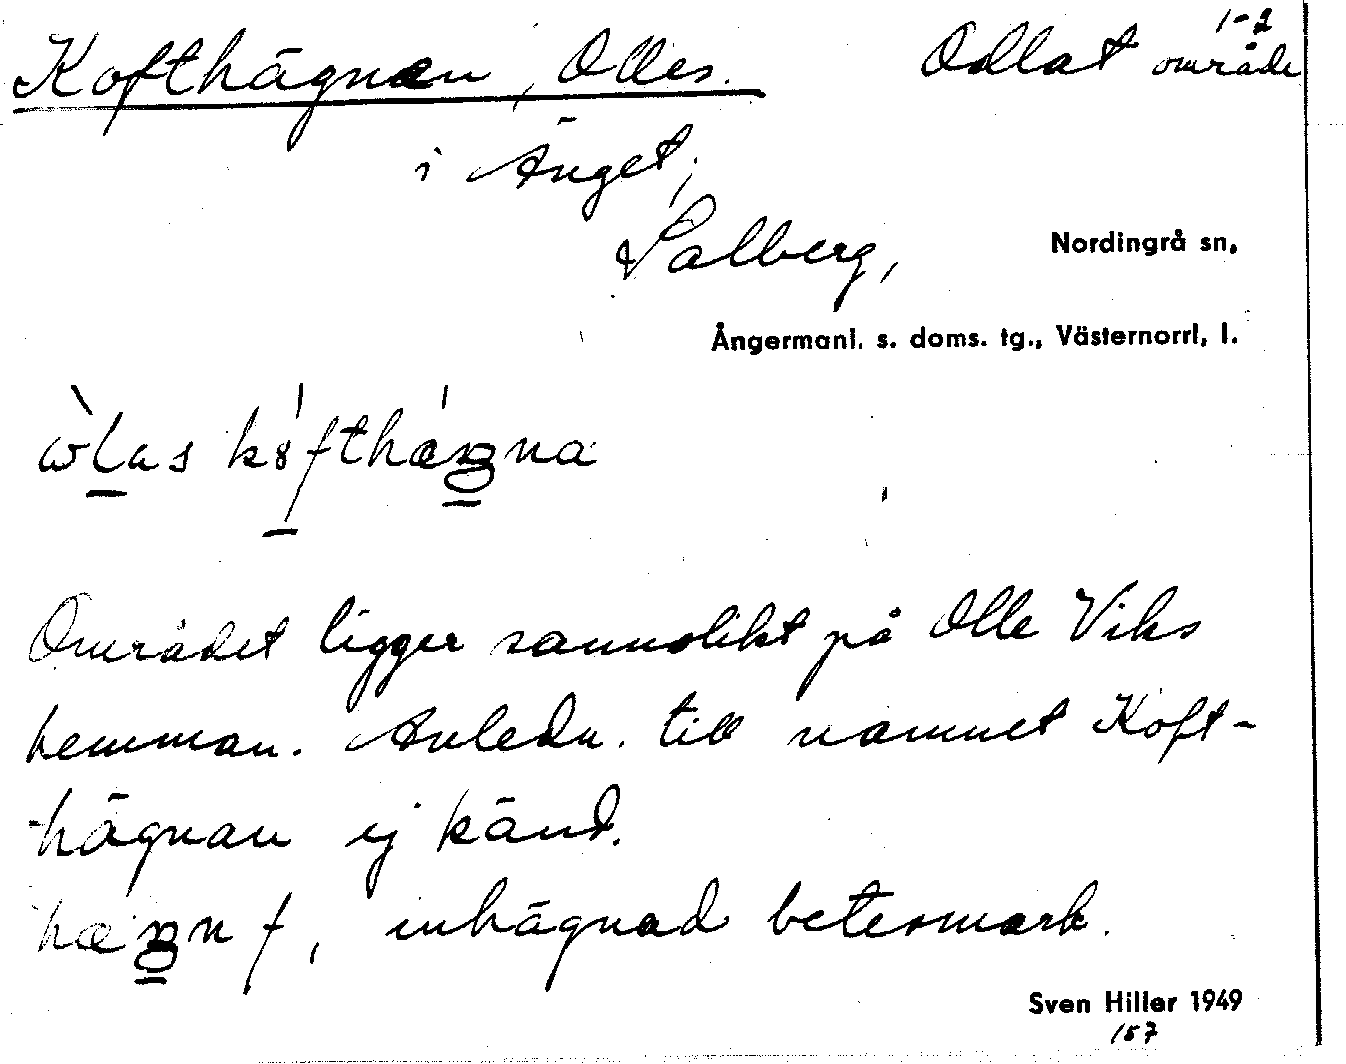 1-2
Kofthägnan, Olles. Odlat område
i Änget,
Salberg, Nordingrå sn,
Ångermanl. s. doms. tg., Västernorrl. l.
Området ligger sannolikt på Olle Viks
hemman. Anledn. till namnet Koft-
hägnan ej känd.
f, inhägnad betesmark.
Sven Hiller 1949
157